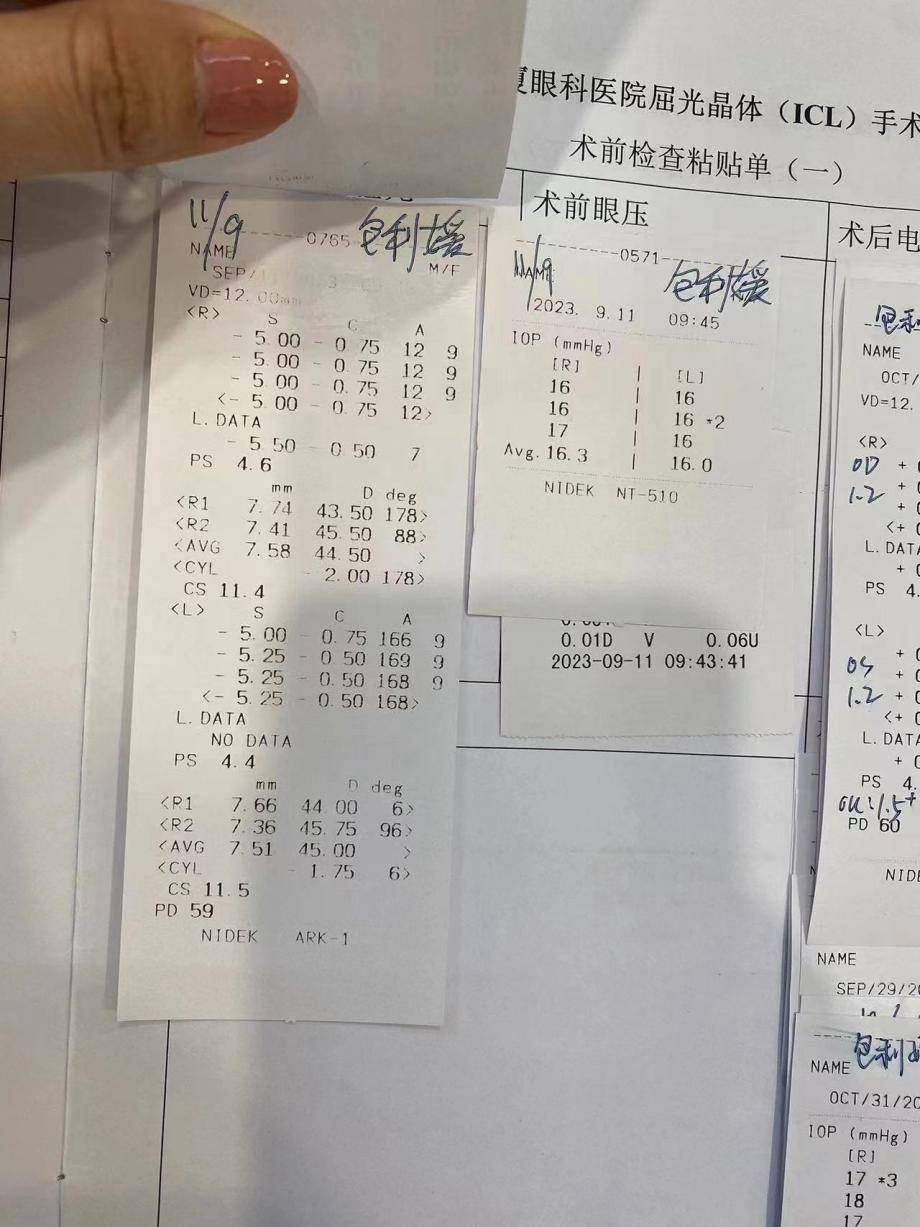 厦眼科医院屈光晶体（ICL）手术
术前检查粘贴单（一）
11/9
0765
包利媛
NAME
M/F
SEP/
VD=12.00mm
<R> S C A
- 5.00 - 0.75 12 9
- 5.00 - 0.75 12 9
- 5.00 - 0.75 12 9
<- 5.00 - 0.75 12>
L.DATA
- 5.50 - 0.50 7
PS 4.6
mm D deg
<R1 7.74 43.50 178>
<R2 7.41 45.50 88>
<AVG 7.58 44.50 >
<CYL - 2.00 178>
CS 11.4
<L> S C A
- 5.00 - 0.75 166 9
- 5.25 - 0.50 169 9
- 5.25 - 0.50 168 9
<- 5.25 - 0.50 168>
L.DATA
NO DATA
PS 4.4
mm D deg
<R1 7.66 44.00 6>
<R2 7.36 45.75 96>
<AVG 7.51 45.00 >
<CYL - 1.75 6>
CS 11.5
PD 59
NIDEK ARK-1
术前眼压
11/9
0571
NAME
包利媛
2023. 9.11 09:45
IOP (mmHg)
[R] | [L]
16 | 16
16 | 16 *2
17 | 16
Avg.16.3 | 16.0
NIDEK NT-510
0.01D V 0.06U
2023-09-11 09:43:41
术后电
包利
NAME
OCT/
VD=12.
<R>
OD + 0
1.2 + 0
+ 0
<+ 0
L.DATA
+ 0
PS 4.
<L>
+ 0
OS + 0
1.2 + 0
<+ 0
L.DATA
+ 0
PS 4.
OU:1.5+
PD 60
NIDE
NAME
SEP/29/20
包利
NAME
OCT/31/20
IOP (mmHg)
[R]
17 *3
18
17